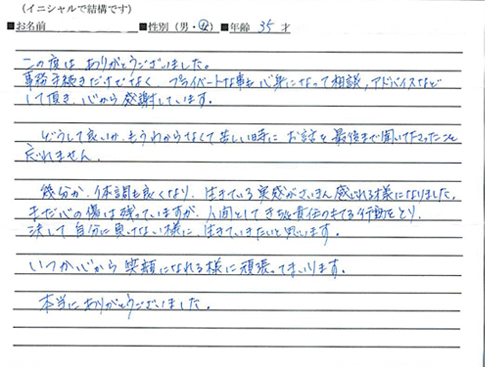 (イニシャルで結構です)
■お名前 ■性別(男・女)■年齢 35 才
この度は ありがとうございました。
事務手続きだけでなく プライベートな事も心身になって相談、アドバイスなど
して頂き、心から感謝しています。
どうして良いか、もうわからなくて苦しい時に お話を最後まで聞いて下さったこと
忘れません。
幾分か、体調も良くなり、生きている実感がさいきん感じれる様になりました。
まだ心の傷は残っていますが、人間としてきちんと責任のもてる行動をとり、
決して自分に負けない様に、生きていきたいと思います。
いつか心から笑顔になれる様に頑張ってまいります。
本当にありがとうございました。